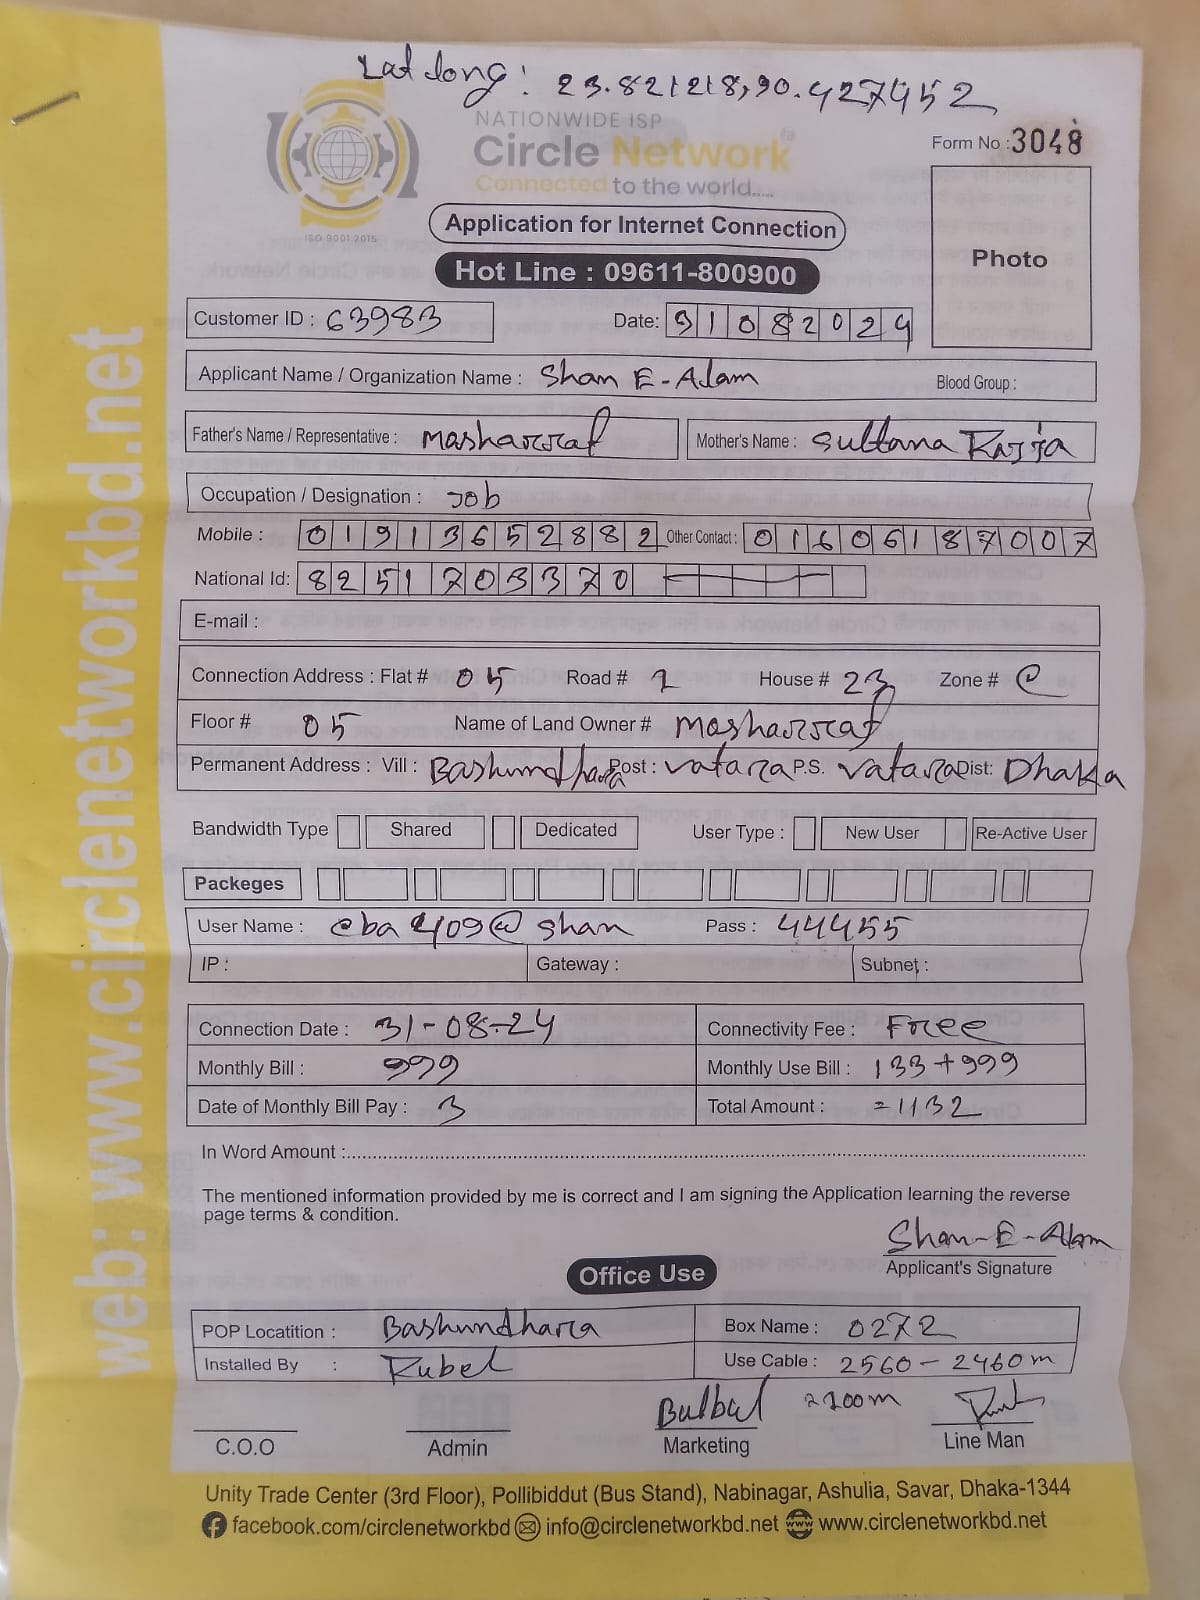 Lat Long: 23.821218,90.427452
NATIONWIDE ISP
Circle Network
Connected to the world.....
ISO 9001:2015
Form No :3048
Application for Internet Connection
Photo
Hot Line : 09611-800900
Customer ID : 63983 Date: 31082024
Applicant Name / Organization Name : Shan E-Adam Blood Group :
Father's Name / Representative : Masharraf Mother's Name : Sultana Razia
Occupation / Designation : Job
Mobile : 01913652882 Other Contact : 01606187007
National Id: 8251703370
E-mail :
Connection Address : Flat # 05 Road # 2 House # 23 Zone # C
Floor # 05 Name of Land Owner # Masharraf
Permanent Address : Vill : Bashundhara Post : Vatara P.S. Vatara Dist: Dhaka
Bandwidth Type Shared Dedicated User Type : New User Re-Active User
Packeges
User Name : cba409@shan Pass : 44455
IP : Gateway : Subnet :
Connection Date : 31-08-24 Connectivity Fee : Free
Monthly Bill : 999 Monthly Use Bill : 133+999
Date of Monthly Bill Pay : 3 Total Amount : =1132
In Word Amount :
The mentioned information provided by me is correct and I am signing the Application learning the reverse
page terms & condition.
Shan-E-Alam
Applicant's Signature
Office Use
POP Locatition : Bashundhara Box Name : 0272
Installed By : Rubel Use Cable : 2560-2460m
Bulbul =100m
C.O.O Admin Marketing Line Man
Unity Trade Center (3rd Floor), Pollibiddut (Bus Stand), Nabinagar, Ashulia, Savar, Dhaka-1344
facebook.com/circlenetworkbd info@circlenetworkbd.net www.circlenetworkbd.net
web: www.circlenetworkbd.net